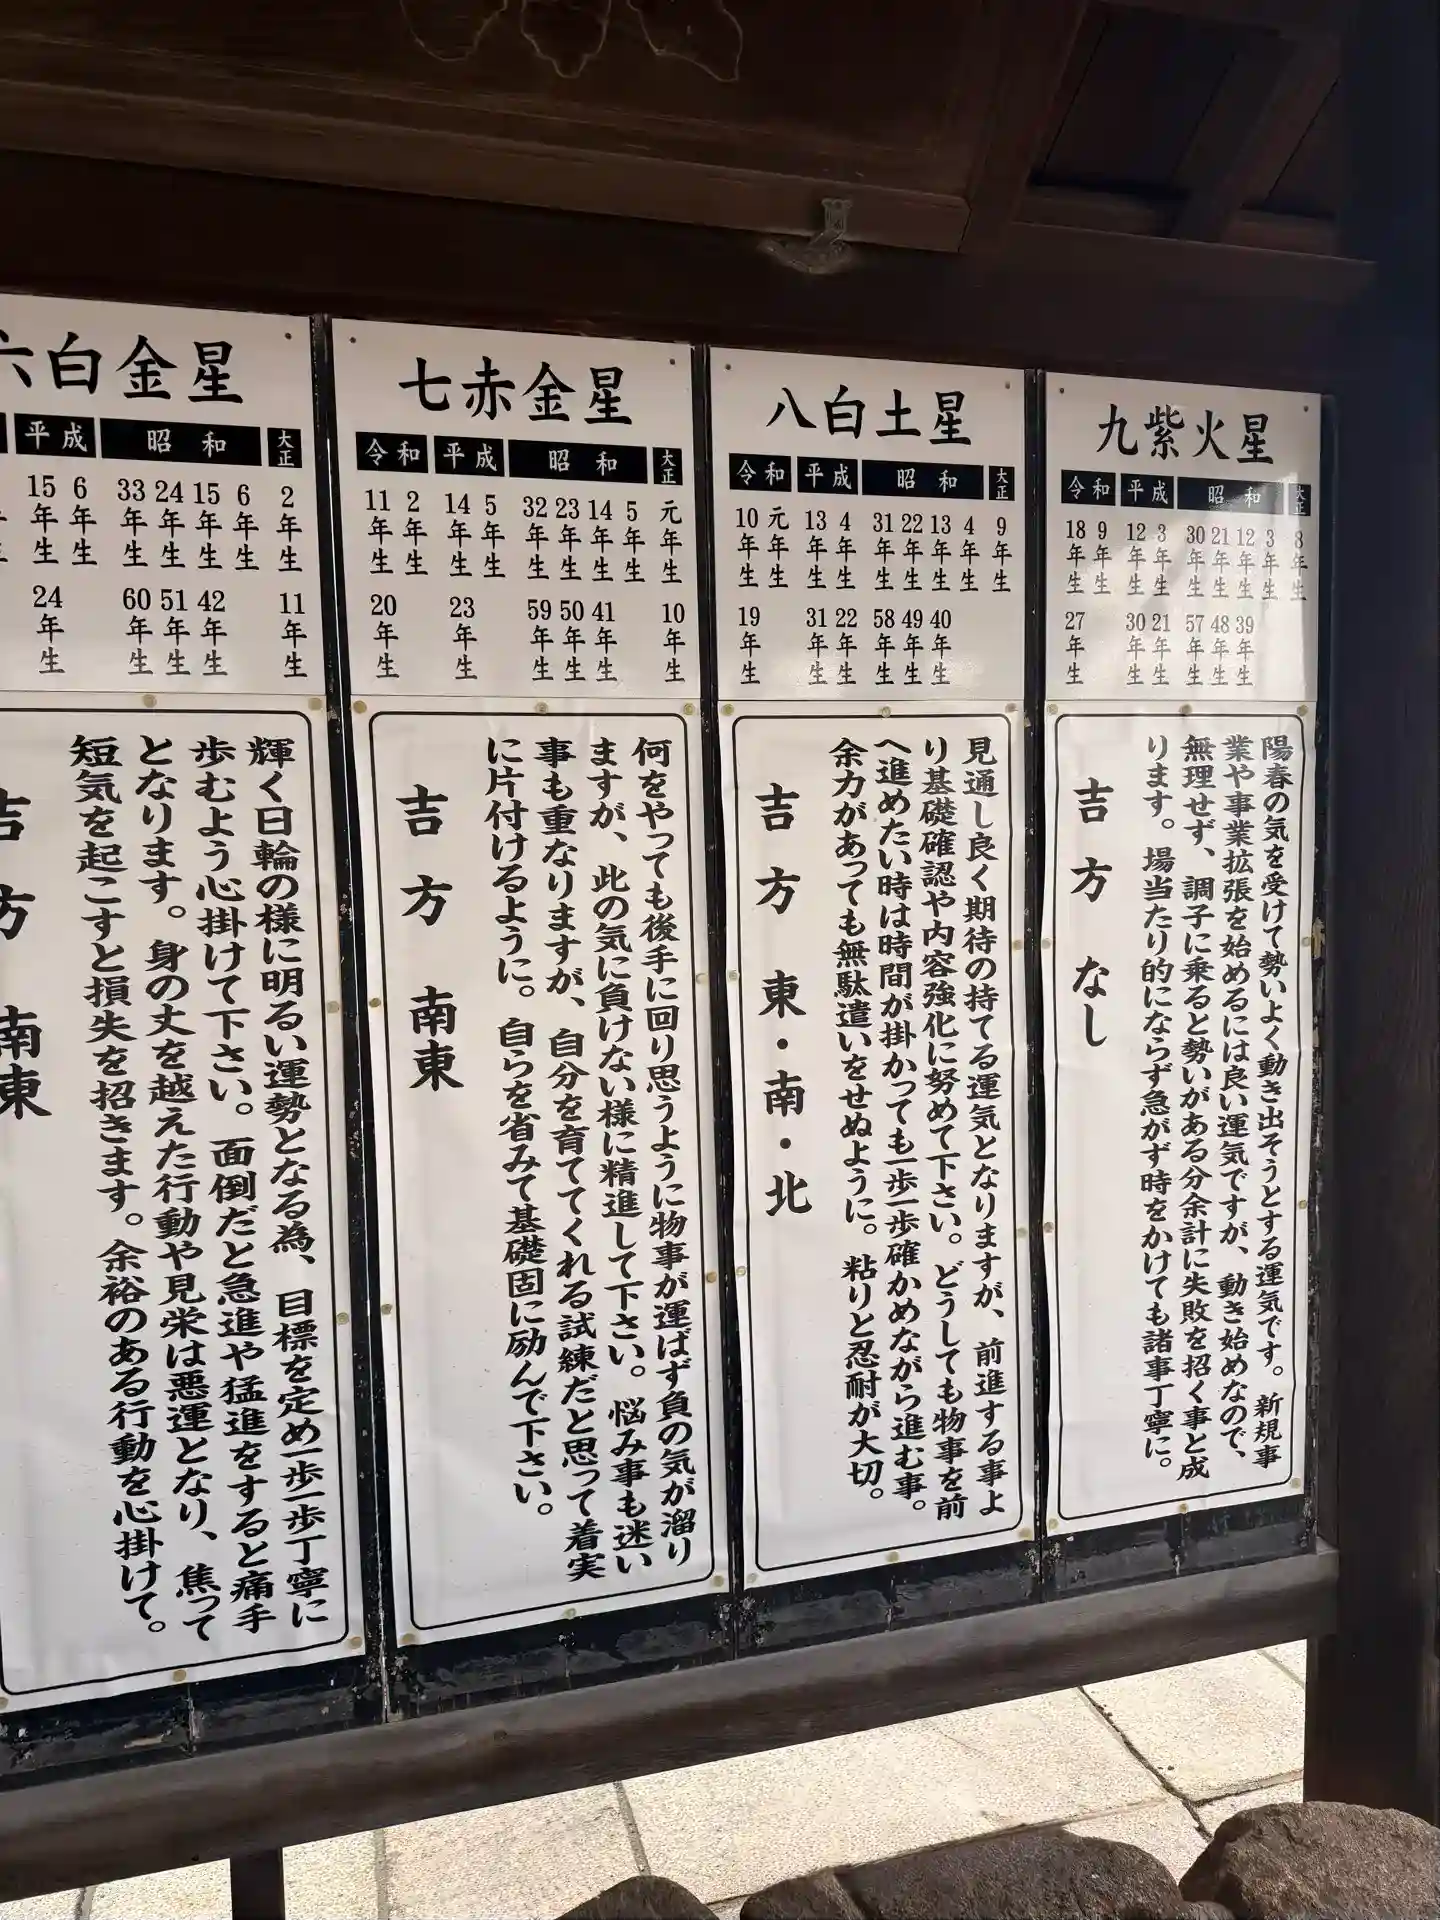 九紫火星
令和 平成 昭和 大正
18年生 9年生 12年生 3年生 30年生 21年生 12年生 3年生 8年生
27年生 30年生 21年生 57年生 48年生 39年生
陽春の気を受けて勢いよく動き出そうとする運気です。新規事
業や事業拡張を始めるには良い運気ですが、動き始めなので、
無理せず、調子に乗ると勢いがある分余計に失敗を招く事と成
ります。場当たり的にならず急がず時をかけても諸事丁寧に。
吉方 なし
八白土星
令和 平成 昭和 大正
10年生 元年生 13年生 4年生 31年生 22年生 13年生 4年生 9年生
19年生 31年生 22年生 58年生 49年生 40年生
見通し良く期待の持てる運気となりますが、前進する事よ
り基礎確認や内容強化に努めて下さい。どうしても物事を前
へ進めたい時は時間が掛かっても一歩一歩確かめながら進む事。
余力があっても無駄遣いをせぬように。粘りと忍耐が大切。
吉方 東・南・北
七赤金星
令和 平成 昭和 大正
11年生 2年生 14年生 5年生 32年生 23年生 14年生 5年生 元年生
20年生 23年生 59年生 50年生 41年生 10年生
何をやっても後手に回り思うように物事が運ばず負の気が溜り
ますが、此の気に負けない様に精進して下さい。悩み事も迷い
事も重なりますが、自分を育ててくれる試練だと思って着実
に片付けるように。自らを省みて基礎固に励んで下さい。
吉方 南東
六白金星
平成 昭和 大正
15年生 6年生 33年生 24年生 15年生 6年生 2年生
24年生 60年生 51年生 42年生 11年生
輝く日輪の様に明るい運勢となる為、目標を定め一歩一歩丁寧に
歩むよう心掛けて下さい。面倒だと急進や猛進をすると痛手
となります。身の丈を越えた行動や見栄は悪運となり、焦って
短気を起こすと損失を招きます。余裕のある行動を心掛けて。
吉方 南東